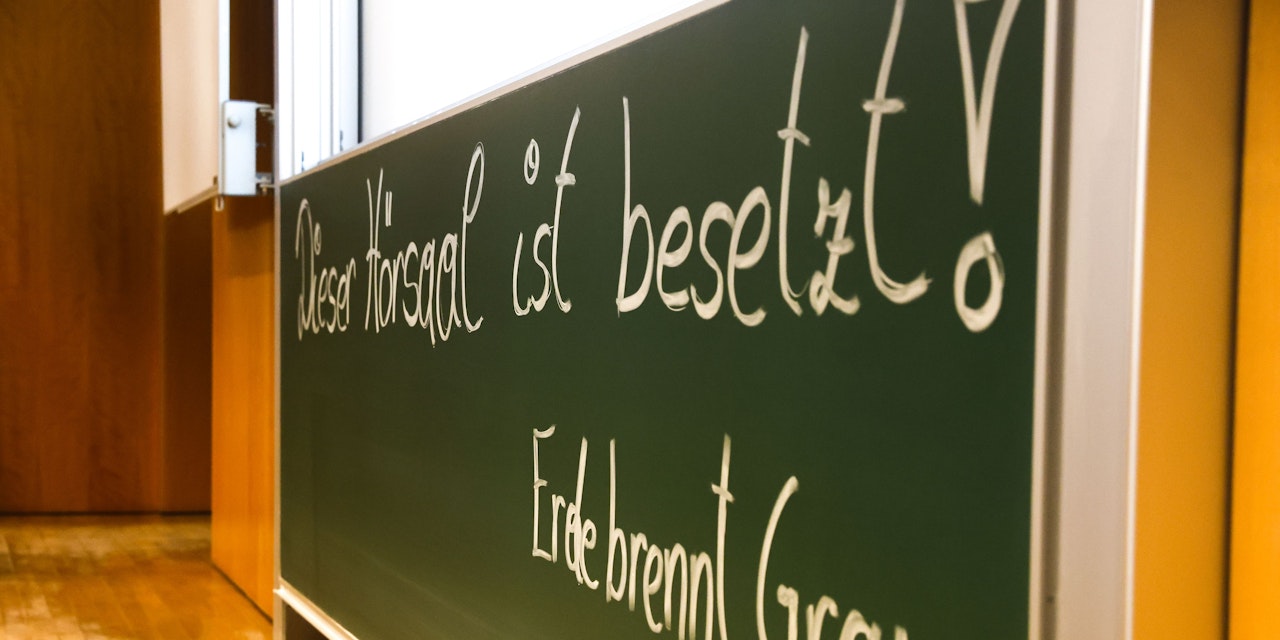 Dieser Hörsaal ist besetzt!
Erde brennt